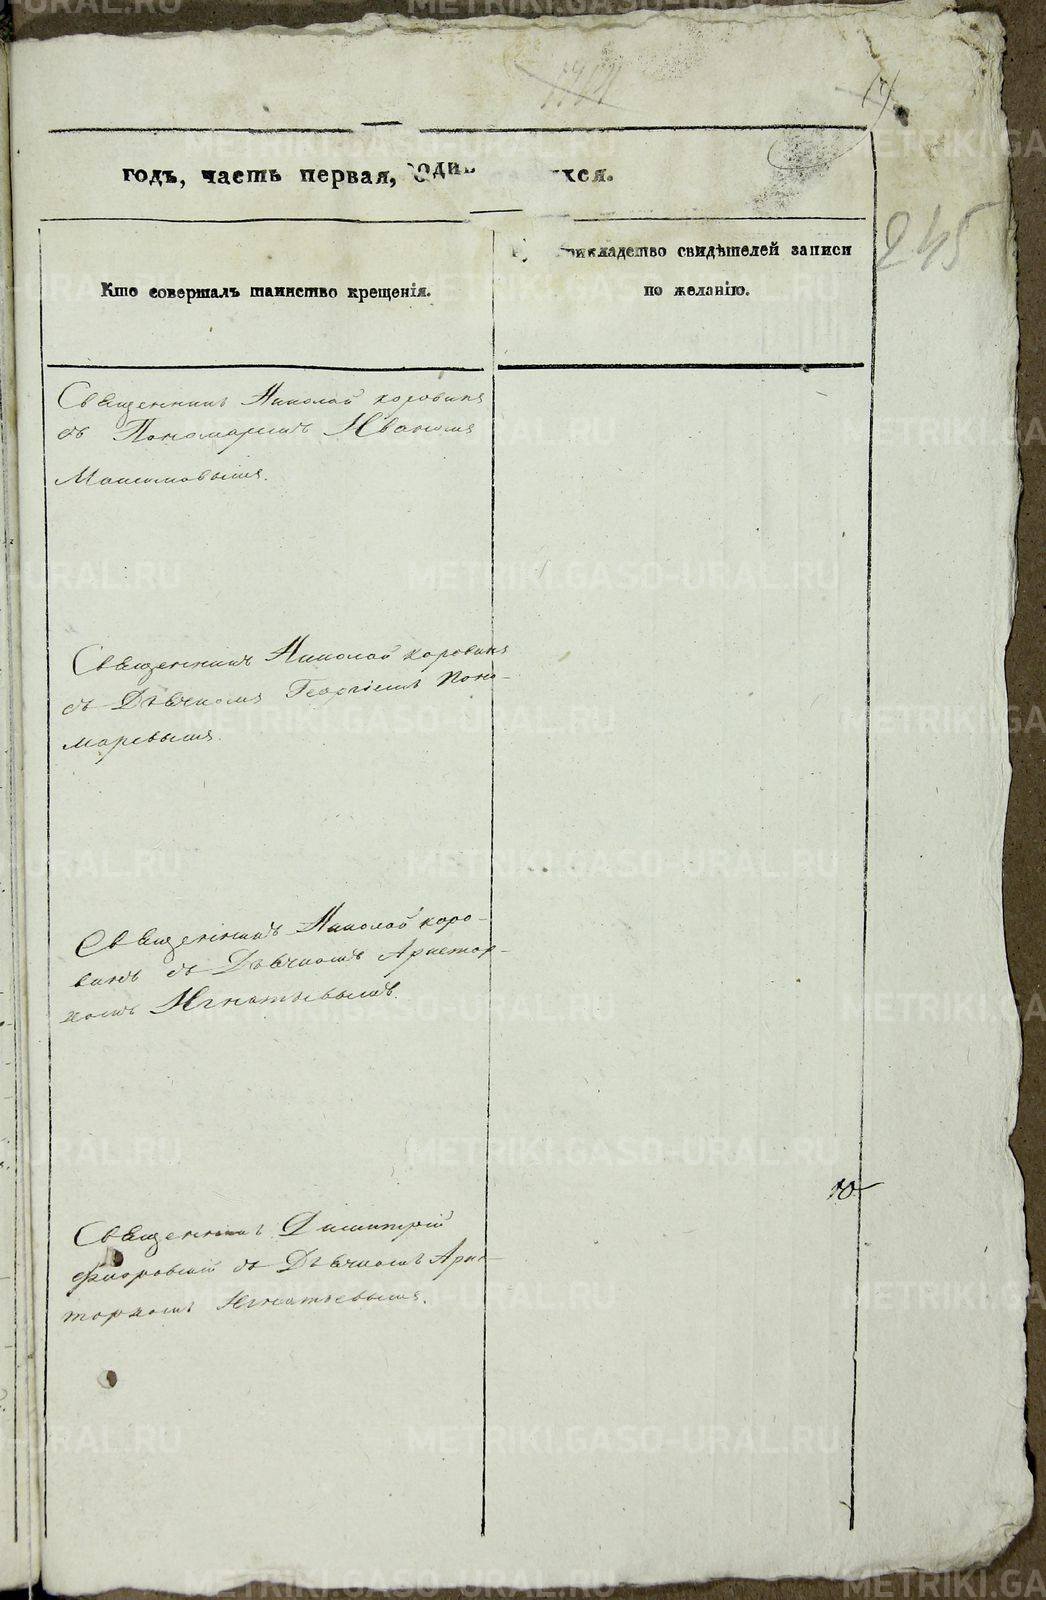 245
годъ, часть первая,
Кто совершалъ таинство крещенія.
свидѣтелей записи
по желанію.
Священникъ Николай Коровинъ
съ Пономаремъ Иваномъ
Максимовымъ.
Священникъ Николай Коровинъ
съ Дьячкомъ Георгіемъ Поно-
маревымъ.
Священникъ Николай Коро-
винъ съ Дьячкомъ Аристар-
хомъ Игнатьевымъ.
10
Священникъ Димитрій
съ Дьячкомъ Арис-
тархомъ Игнатьевымъ.
METRIKI.GASO-URAL.RU